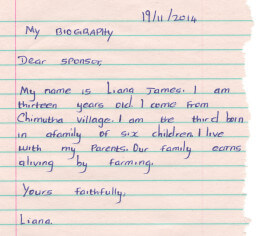 19/11/2014
My BIOGRAPHY
Dear sponsor,
My name is Liana James. I am
thirteen years old. I come from
Chimutha village. I am the third born
in afamily of six children. I live
with my Parents. Our family earns
aliving by farming.
Yours faithfully,
Liana.